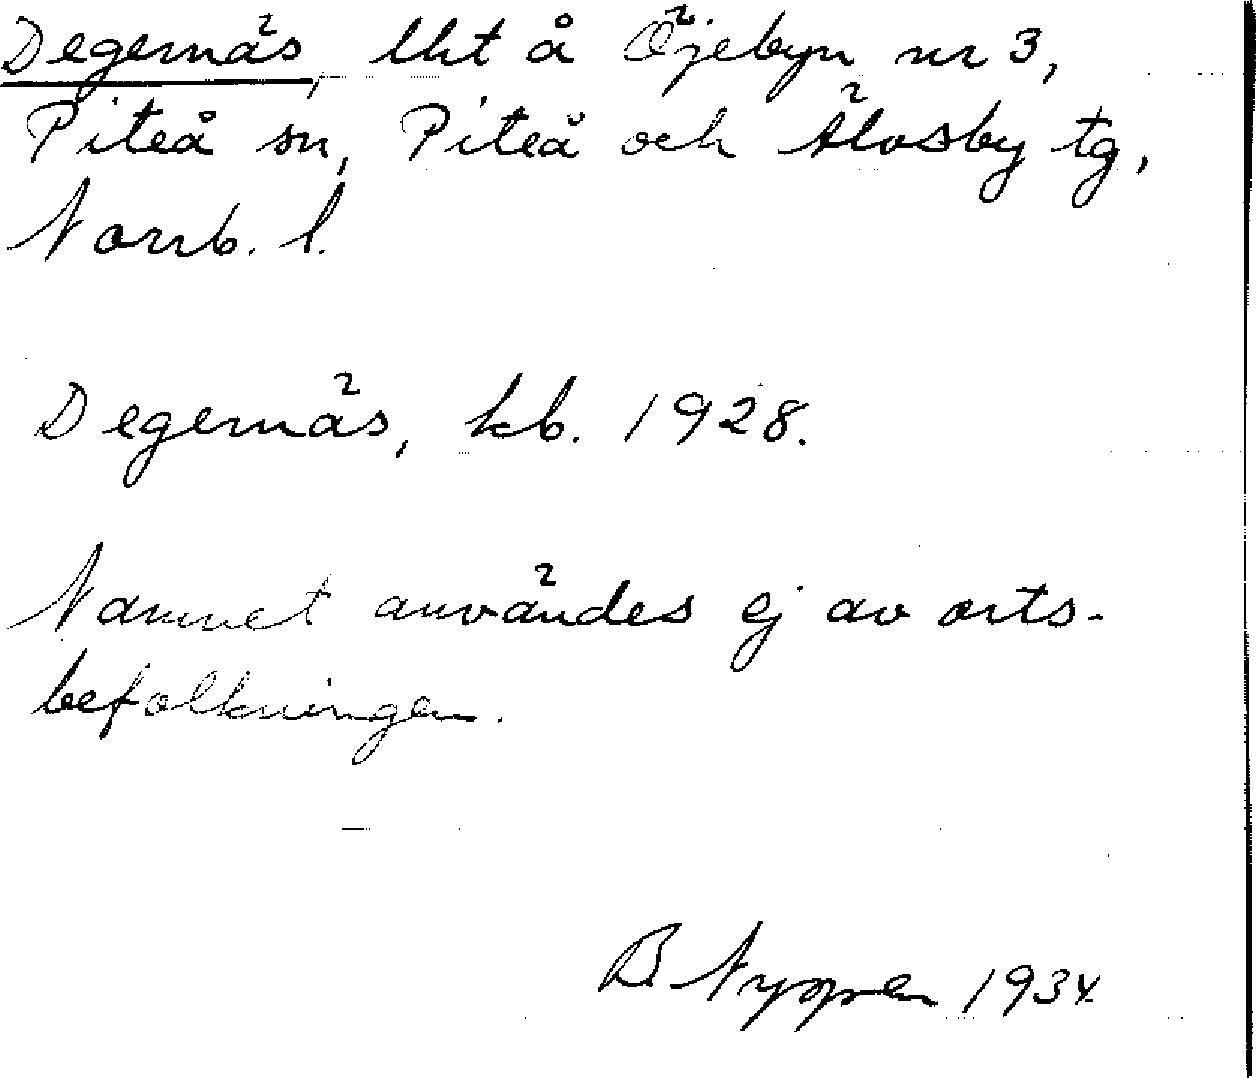 Degernäs, lht å Öjebyn nr 3,
Piteå sn, Piteå och Älvsby tg,
Norrb. l.
Degernäs, kb. 1928.
Namnet användes ej av orts-
befolkningen.
B. 1934